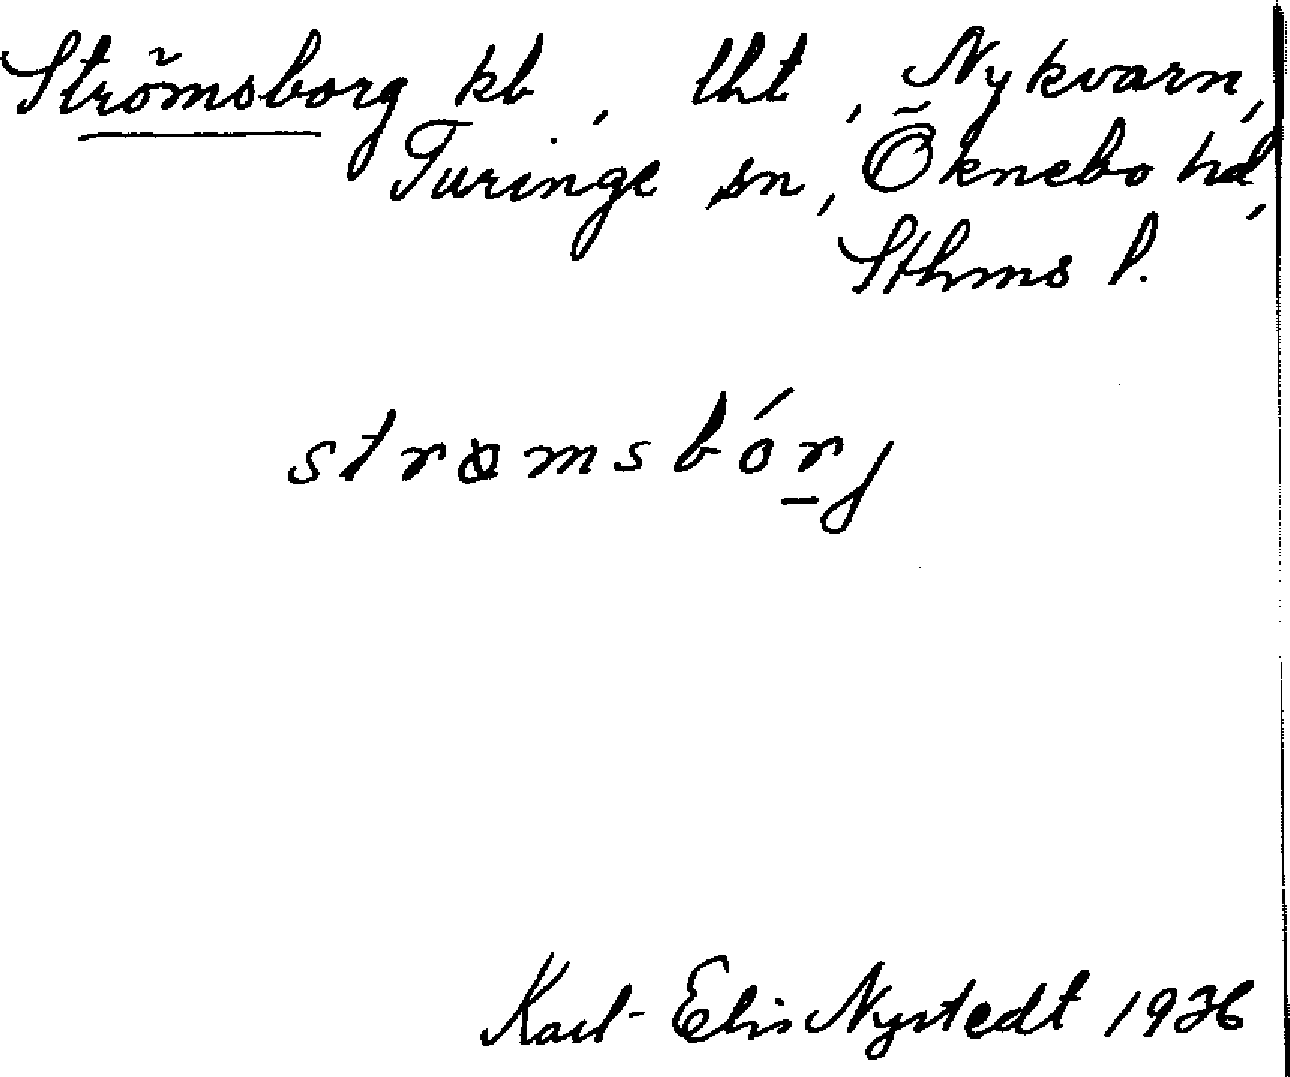 Strömsborg kb, lht, Nykvarn,
Turinge sn, Öknebo hd,
Sthms l.
strømsbórj
Karl-Elis Nystedt 1936